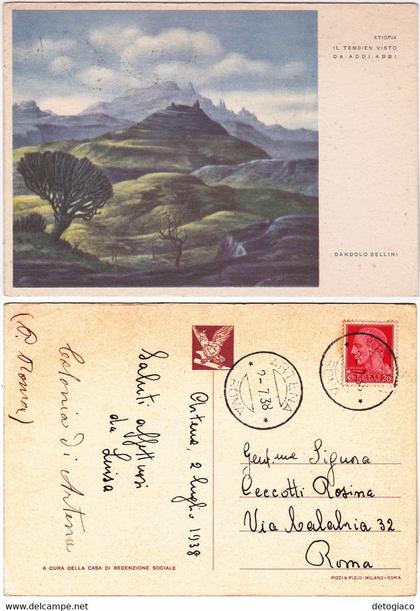 ETIOPIA
IL TEMBIEN VISTO
DA ADDI ABBI
DANDOLO BELLINI
(d. Roma)
Colonia di Artena
Saluti affettuosi
da Luisa
Artena, 2 luglio 1938
ARTENA
2-7.38
ROMA
20
Gent.me Signora
Ceccotti Rosina
Via Calabria 32
Roma
A CURA DELLA CASA DI REDENZIONE SOCIALE
PIZZI & PIZIO-MILANO-ROMA
detogiaco - www.delcampe.net